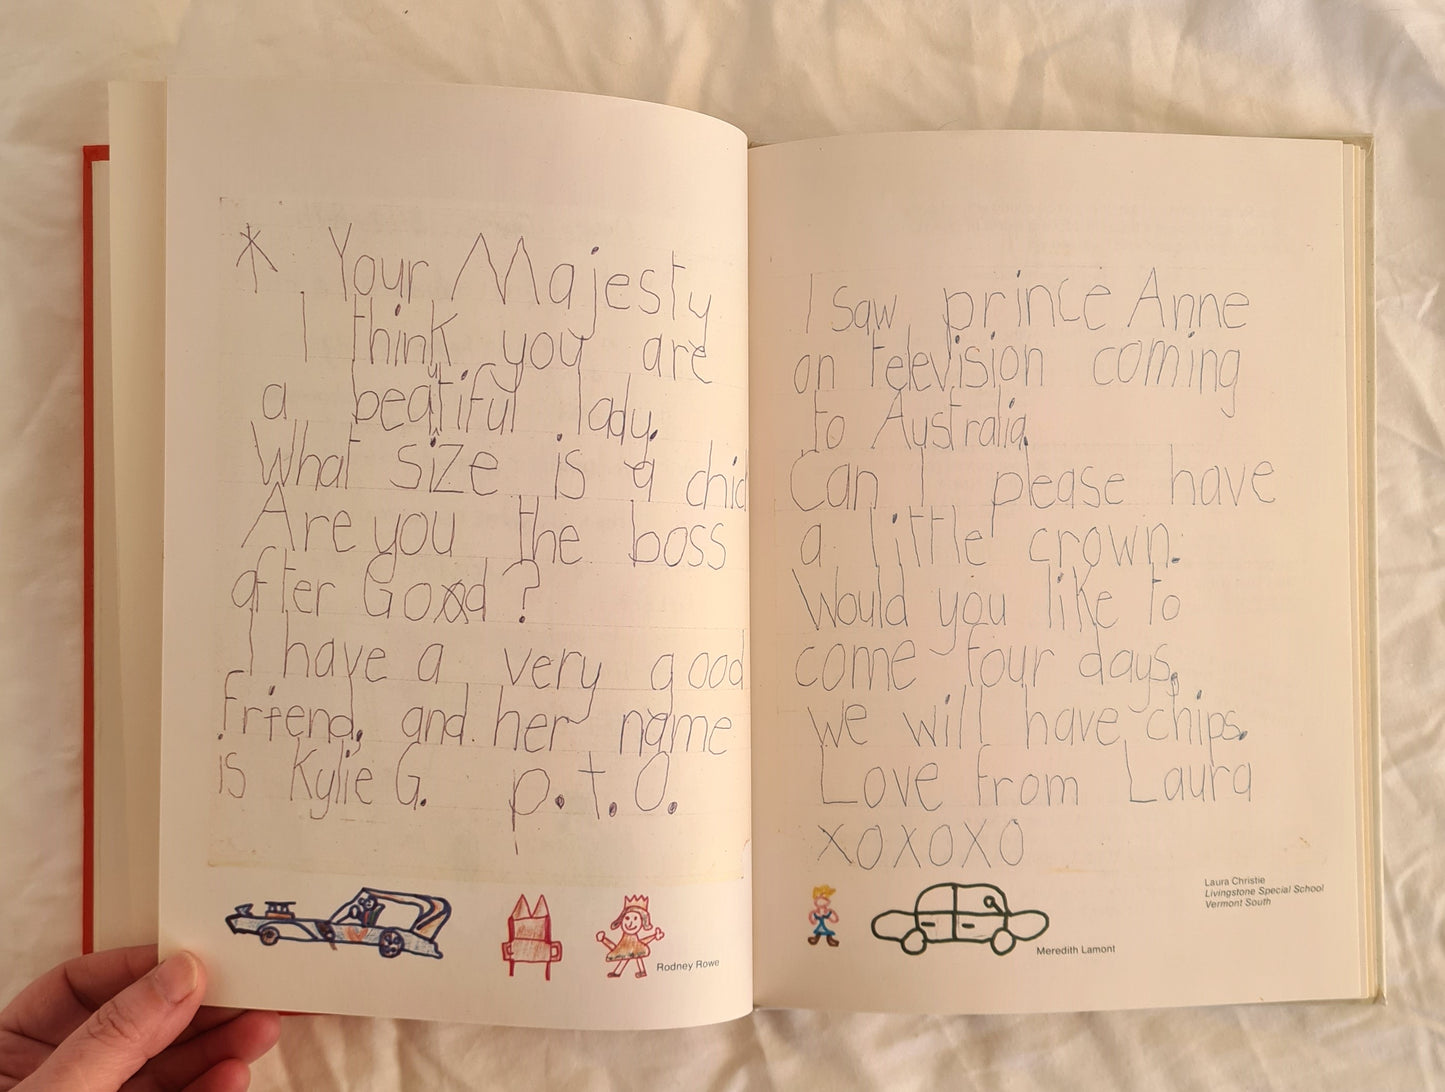 * Your Majesty
I think you are
a beatiful lady.
What size is a chid
Are you the boss
after God?
I have a very good
friend, and her name
is Kylie G. p.t.O.
Rodney Rowe
I saw prince Anne
on television coming
to Australia.
Can I please have
a little crown.
Would you like to
come four days.
we will have chips.
Love from Laura
xoxoxo
Laura Christie
Livingstone Special School
Vermont South
Meredith Lamont